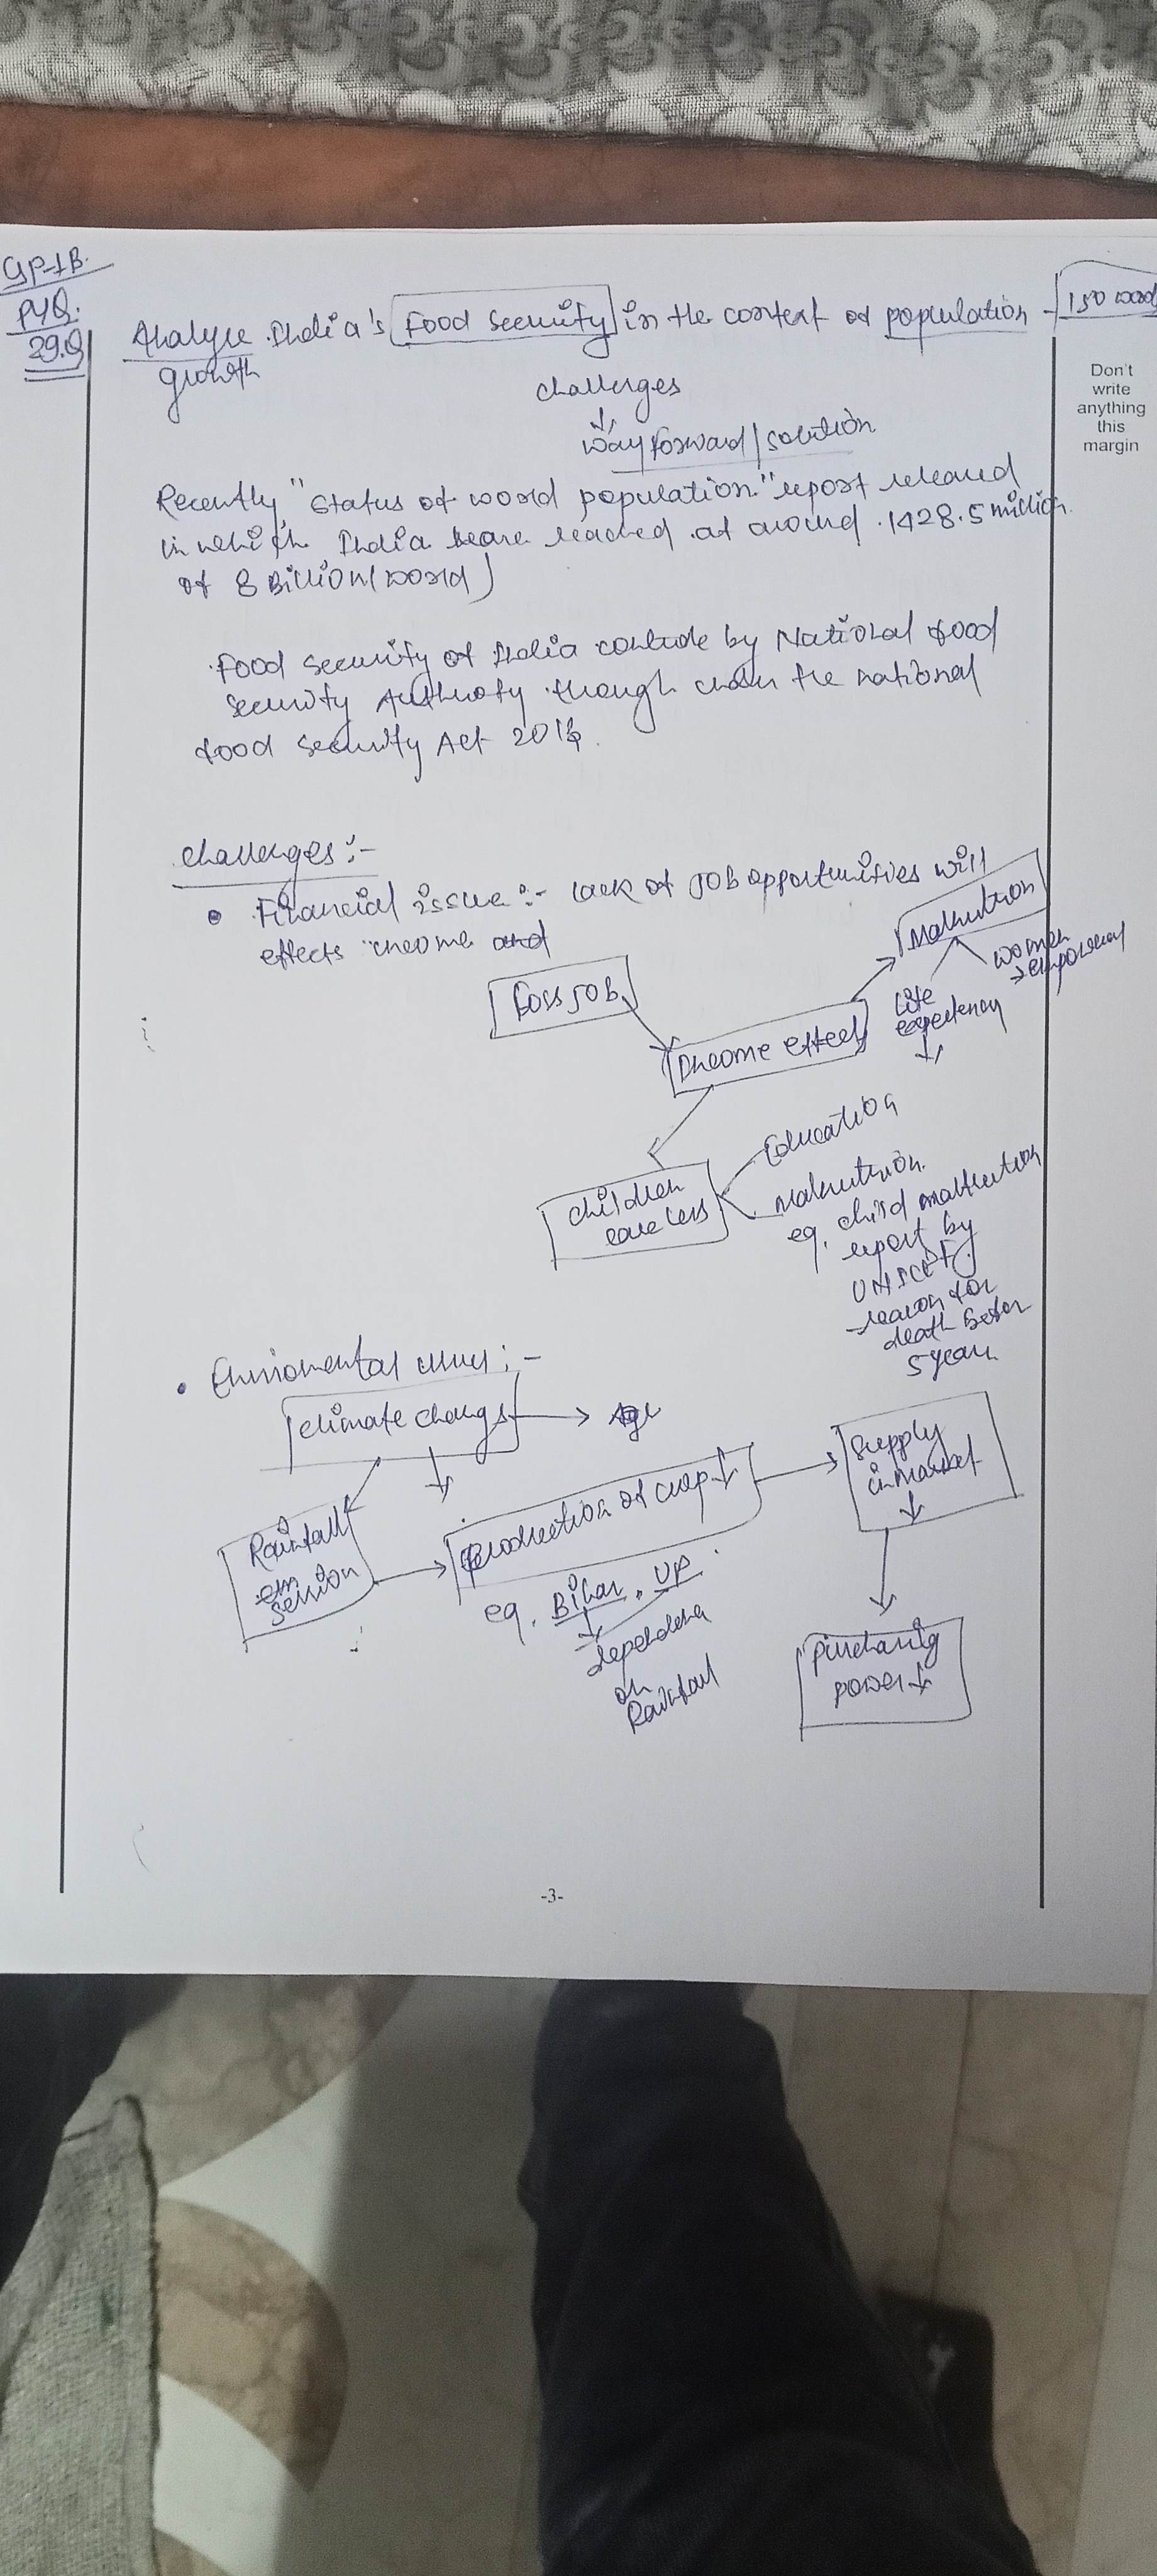 GP-1B.
PYQ.
29.Q
Analyse India's Food Security in the context of population - 150 word
growth
Don't
write
anything
this
margin
challenges
↓
way forward/solution
Recently "Status of world population" report released
in which India have reached at around 1428.5 million
of 8 Billion (world)
Food security of India by National food
Security though under the national
food Security Act 201
challenges :-
• Financial issue :- lack of job opportunities will
effects income and
Malnutrition
women
→
Loss job
Life
expectency
↓
Income effect
Education
children
care less
Malnutrition.
eg. child malnutrition
report by
UNICEF
reason for
death
5 year
• Enviromental issues : -
climate change → Age
Supply
in market
↓
production of crop ↓
Rainfall
session
eg. Bihar, UP.
dependena
on
Rainfall
purchasing
power ↓
-3-